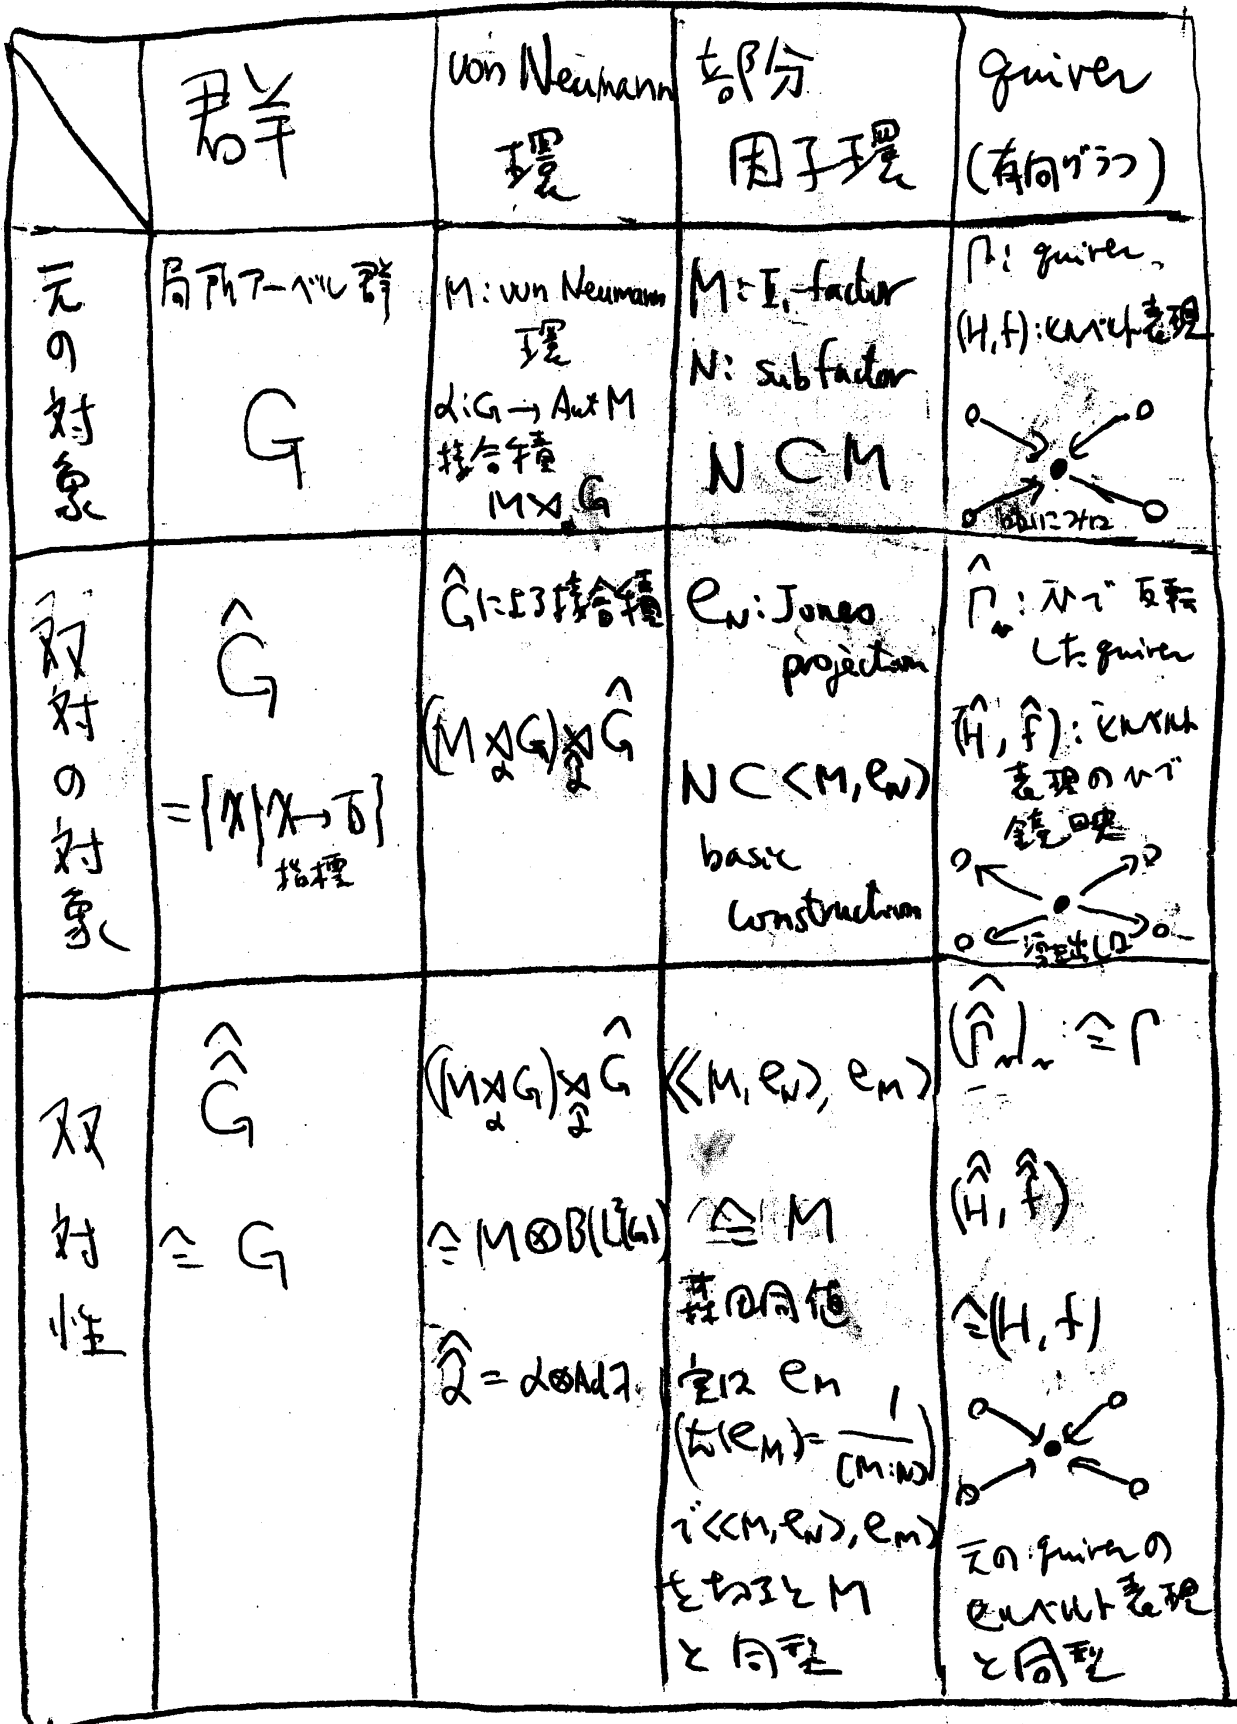 群
von Neumann
環
部分
因子環
quiver
(有向グラフ)
元の対象
局所アーベル群
G
M: von Neumann
環
α: G → Aut M
接合積
M⋊G
M: II₁-factor
N: subfactor
N ⊂ M
Γ: quiver
(H, f): ヒルベルト表現
双対の対象
Ĝ
= {χ | χ → T}
指標
Ĝによる接合積
(M ⋊_α G) ⋊_α̂ Ĝ
e_N: Jones
projection
N ⊂ <M, e_N>
basic
construction
Γ̂_v: vで反転
したquiver
(Ĥ, f̂): ヒルベルト
表現のvで
鏡映
双対性
Ĝ̂
≅ G
(M ⋊_α G) ⋊_α̂ Ĝ
≅ M ⊗ B(L²(G))
α̂̂ = α⊗Adλ
<<M, e_N>, e_M>
≅ M
森田同値
実は e_M
(tr(e_M) = 1/[M:N])
で<<M, e_N>, e_M>
を切ると M
と同型
(Γ̂̂_v)_v ≅ Γ
(Ĥ̂, f̂̂)
≅ (H, f)
元のquiverの
ヒルベルト表現
と同型